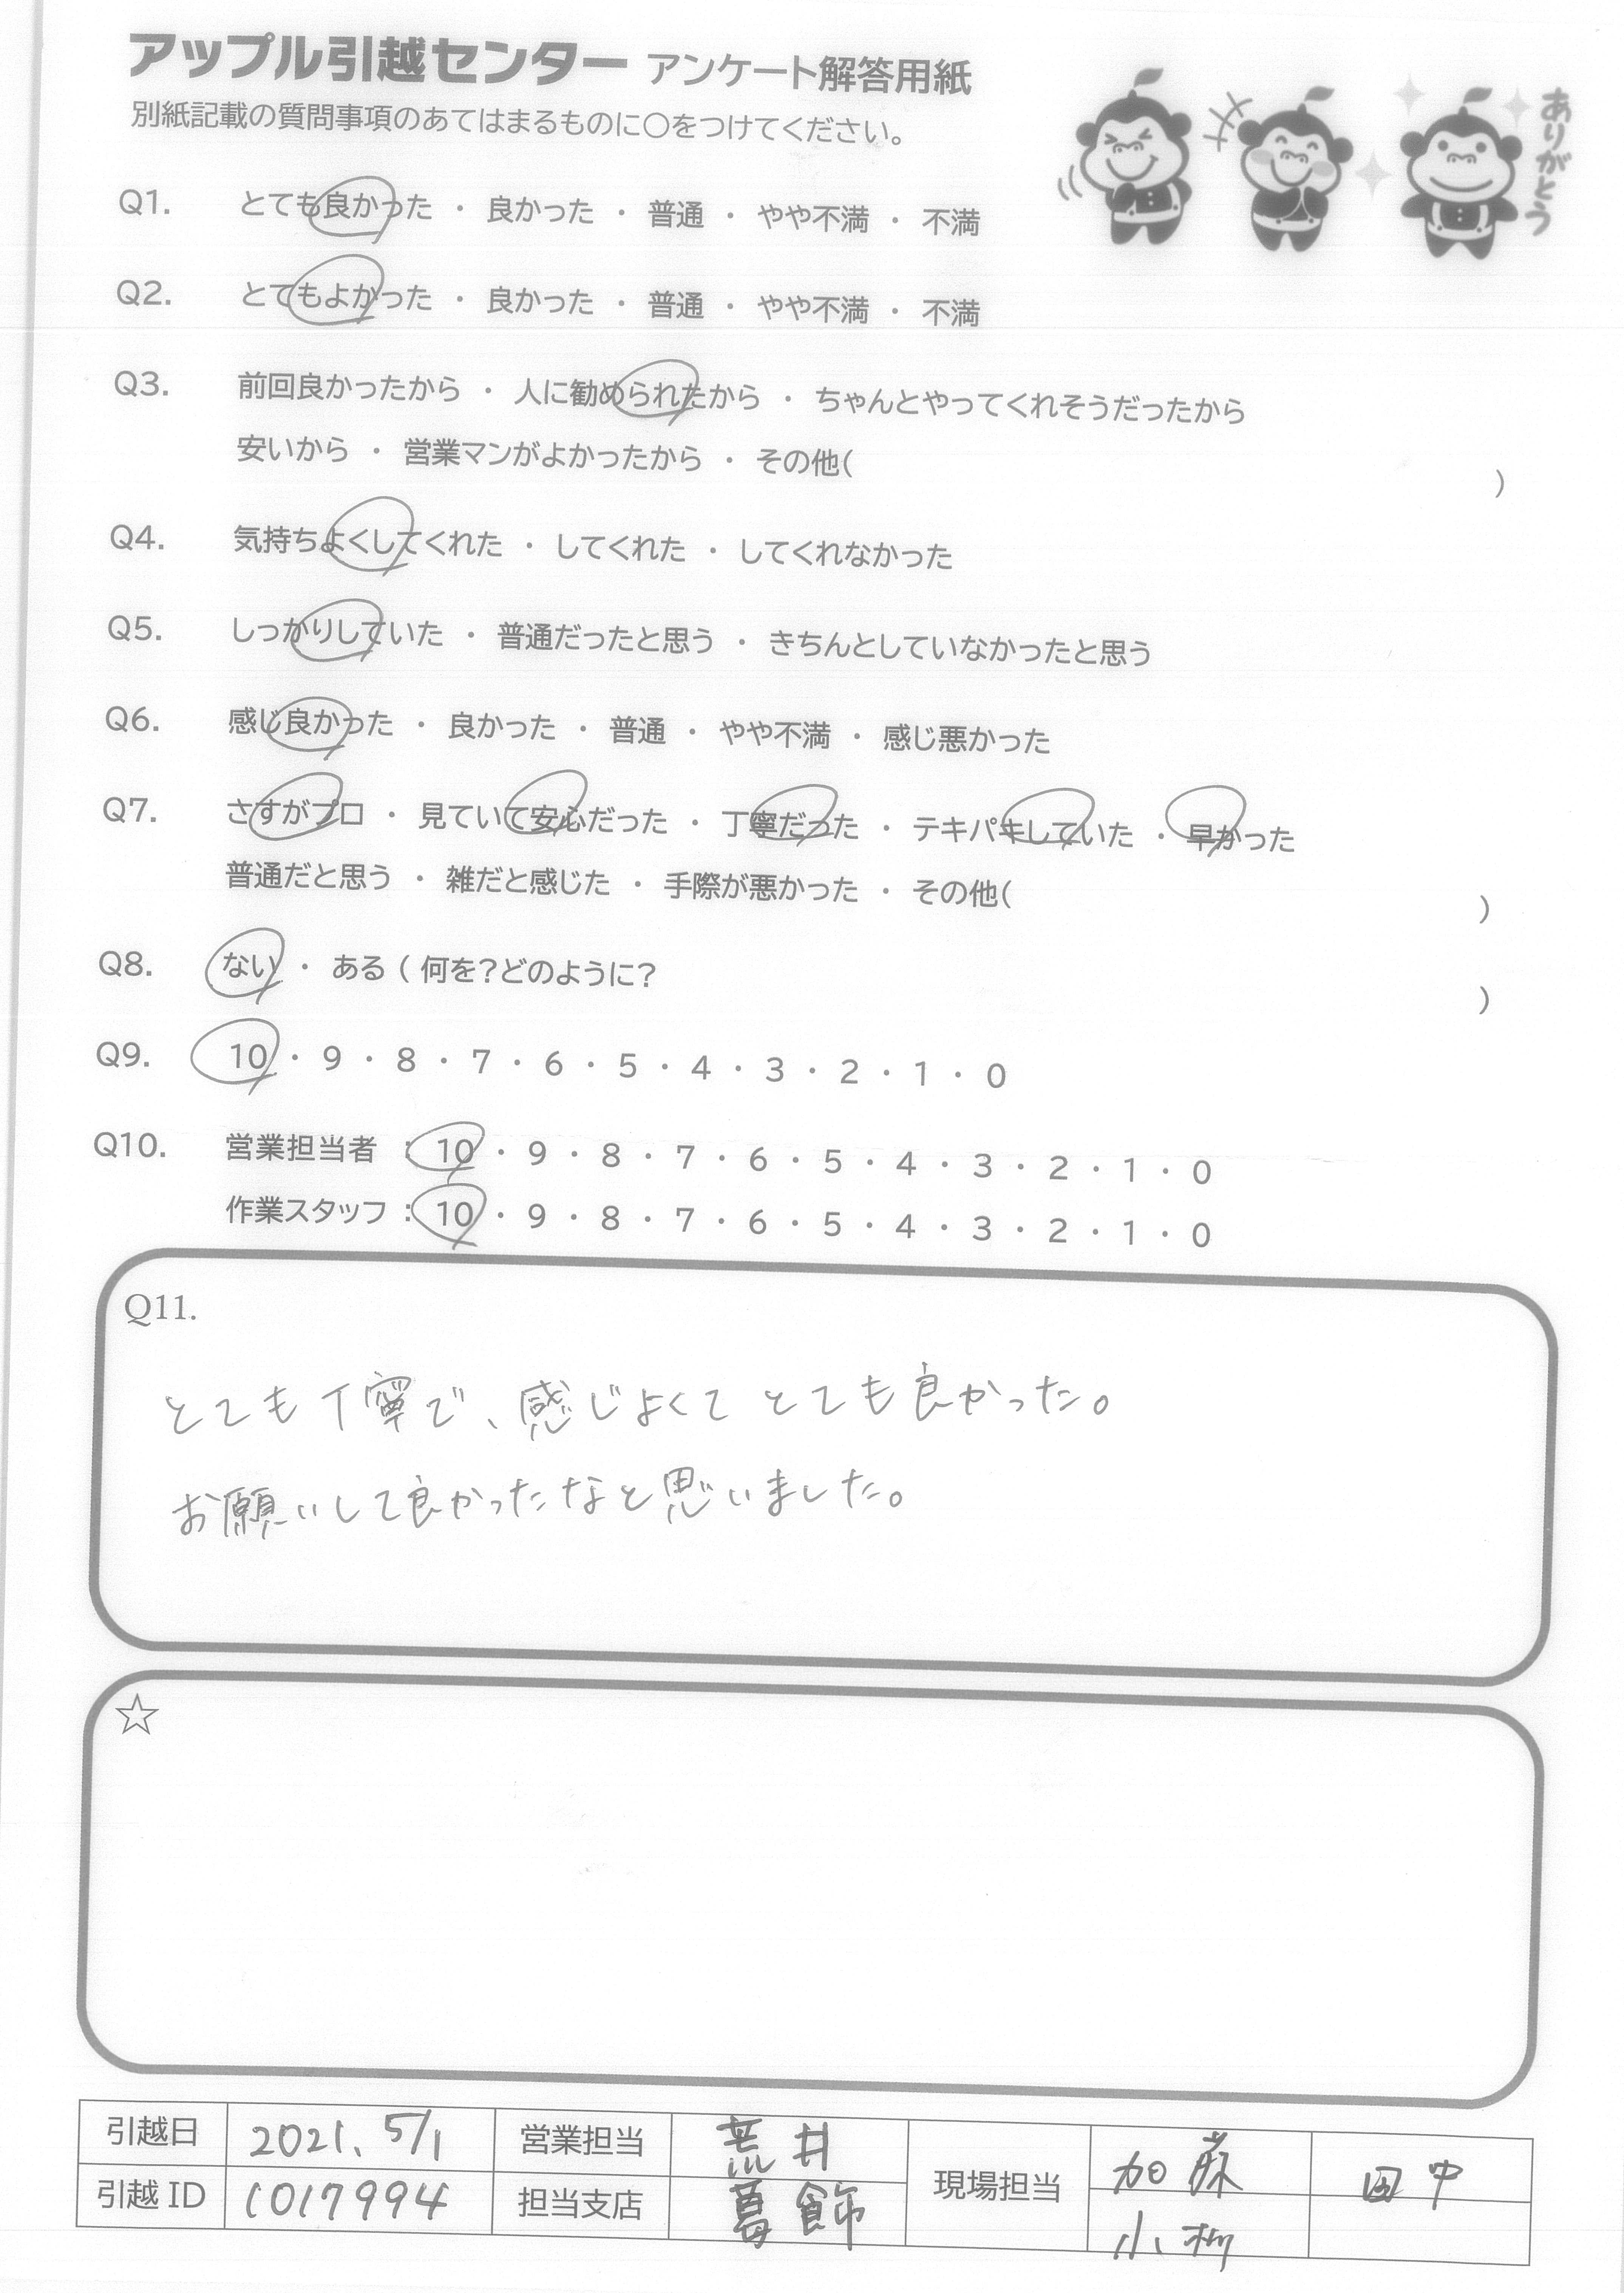 アップル引越センター アンケート解答用紙
別紙記載の質問事項のあてはまるものに○をつけてください。
ありがとう
Q1. とても良かった ・ 良かった ・ 普通 ・ やや不満 ・ 不満
Q2. とてもよかった ・ 良かった ・ 普通 ・ やや不満 ・ 不満
Q3. 前回良かったから ・ 人に勧められたから ・ ちゃんとやってくれそうだったから
安いから ・ 営業マンがよかったから ・ その他( )
Q4. 気持ちよくしてくれた ・ してくれた ・ してくれなかった
Q5. しっかりしていた ・ 普通だったと思う ・ きちんとしていなかったと思う
Q6. 感じ良かった ・ 良かった ・ 普通 ・ やや不満 ・ 感じ悪かった
Q7. さすがプロ ・ 見ていて安心だった ・ 丁寧だった ・ テキパキしていた ・ 早かった
普通だと思う ・ 雑だと感じた ・ 手際が悪かった ・ その他( )
Q8. ない ・ ある ( 何を?どのように? )
Q9. 10 ・ 9 ・ 8 ・ 7 ・ 6 ・ 5 ・ 4 ・ 3 ・ 2 ・ 1 ・ 0
Q10. 営業担当者 : 10 ・ 9 ・ 8 ・ 7 ・ 6 ・ 5 ・ 4 ・ 3 ・ 2 ・ 1 ・ 0
作業スタッフ : 10 ・ 9 ・ 8 ・ 7 ・ 6 ・ 5 ・ 4 ・ 3 ・ 2 ・ 1 ・ 0
Q11.
とても丁寧で、感じよくてとても良かった。
お願いして良かったなと思いました。
☆
引越日 2021. 5/1 営業担当 荒井 現場担当 加藤 田中
引越ID 1017994 担当支店 葛飾 小柳